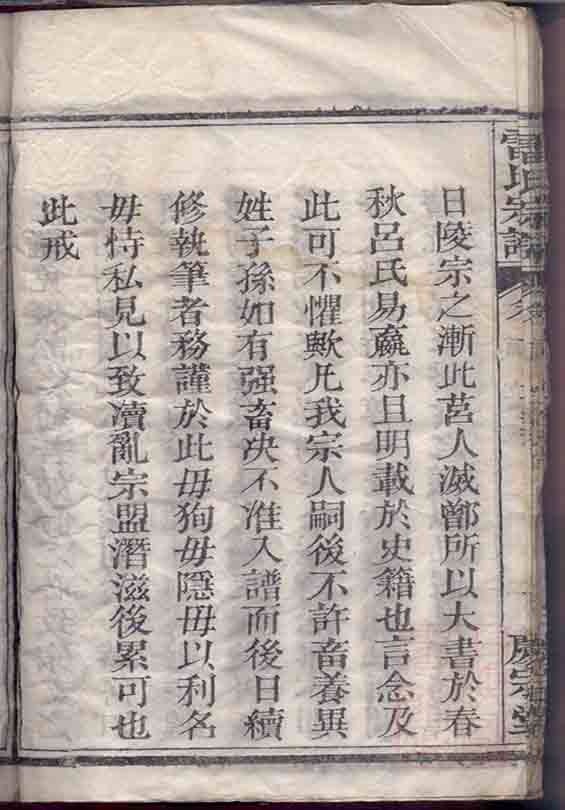 雷氏宗譜
慶宗堂
日陵宗之漸此莒人滅鄫所以大書於春
秋呂氏易嬴亦且明載於史籍也言念及
此可不懼歟凡我宗人嗣後不許畜養異
姓子孫如有强畜决不准入譜而後日續
修執筆者務謹於此毋狥毋隱毋以利名
毋恃私見以致瀆亂宗盟潛滋後累可也
此戒